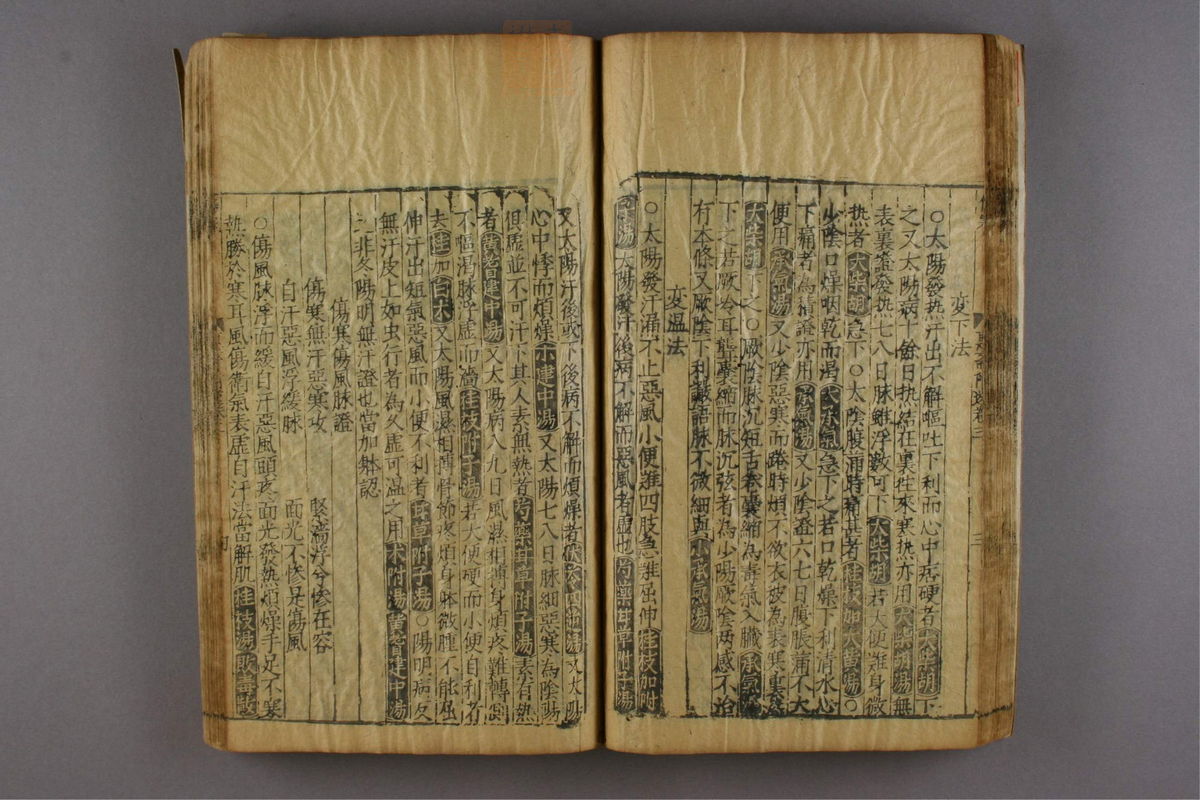 変下法
○太陽發热汗出不解嘔吐下利而心中痞硬者大柴胡下
之又太陽病十餘日热結在裏往來寒热亦用大柴胡湯無
表裏證發热七八日脉雖浮數可下大柴胡若大便難身微
热者大柴胡急下○太陰腹滿時痛甚者桂枝加大黄湯○
少陰口燥咽乾而渴大承氣急下之若口乾燥下利清水心
下痛者為積證亦用承氣湯又少陰證六七日腹脹滿不大
便用承氣湯又少陰惡寒而踡時煩不欲衣被為表寒裏
大柴胡下之○厥陰脉沉短舌卷囊縮為毒氣入臟承氣
下之若厥冷耳聾囊縮而脉沉弦者為少陽厥陰两感不治
有本條又厥陰下利譫語脉不微細與小承氣湯
変温法
○太陽發汗漏不止惡風小便難四肢急難屈伸桂枝加附
子湯太陽發汗後病不解而惡風者虚也芍藥甘草附子湯
又太陽汗後或下後病不解而煩燥者茯苓四逆湯又太陽
心中悸而煩燥小建中湯又太陽七八日脉細惡寒為陰陽
俱虚並不可汗下其人素無熱者芍藥甘草附子湯素有热
者黄耆建中湯又太陽病八九日風濕相薄身煩疼難轉側
不嘔渴脉浮虚而濇桂枝附子湯若大便硬而小便自利者
去桂加白朮又太陽風濕相薄骨節疼煩身躰微腫不能屈
伸汗出短氣惡風而小便不利者甘草附子湯○陽明病反
無汗皮上如虫行者為久虚可温之用朮附湯黄耆建中湯
非冬陽明無汗證也當加躰認
傷寒傷風脉證
傷寒無汗惡寒攻 緊濇浮兮慘在容
自汗惡風浮緩脉 面光不慘是傷風
○傷風脉浮而緩自汗惡風頭疼面光發熱煩燥手足不寒
热勝於寒耳風傷衛氣表虚自汗法當解肌桂枝湯敗毒散